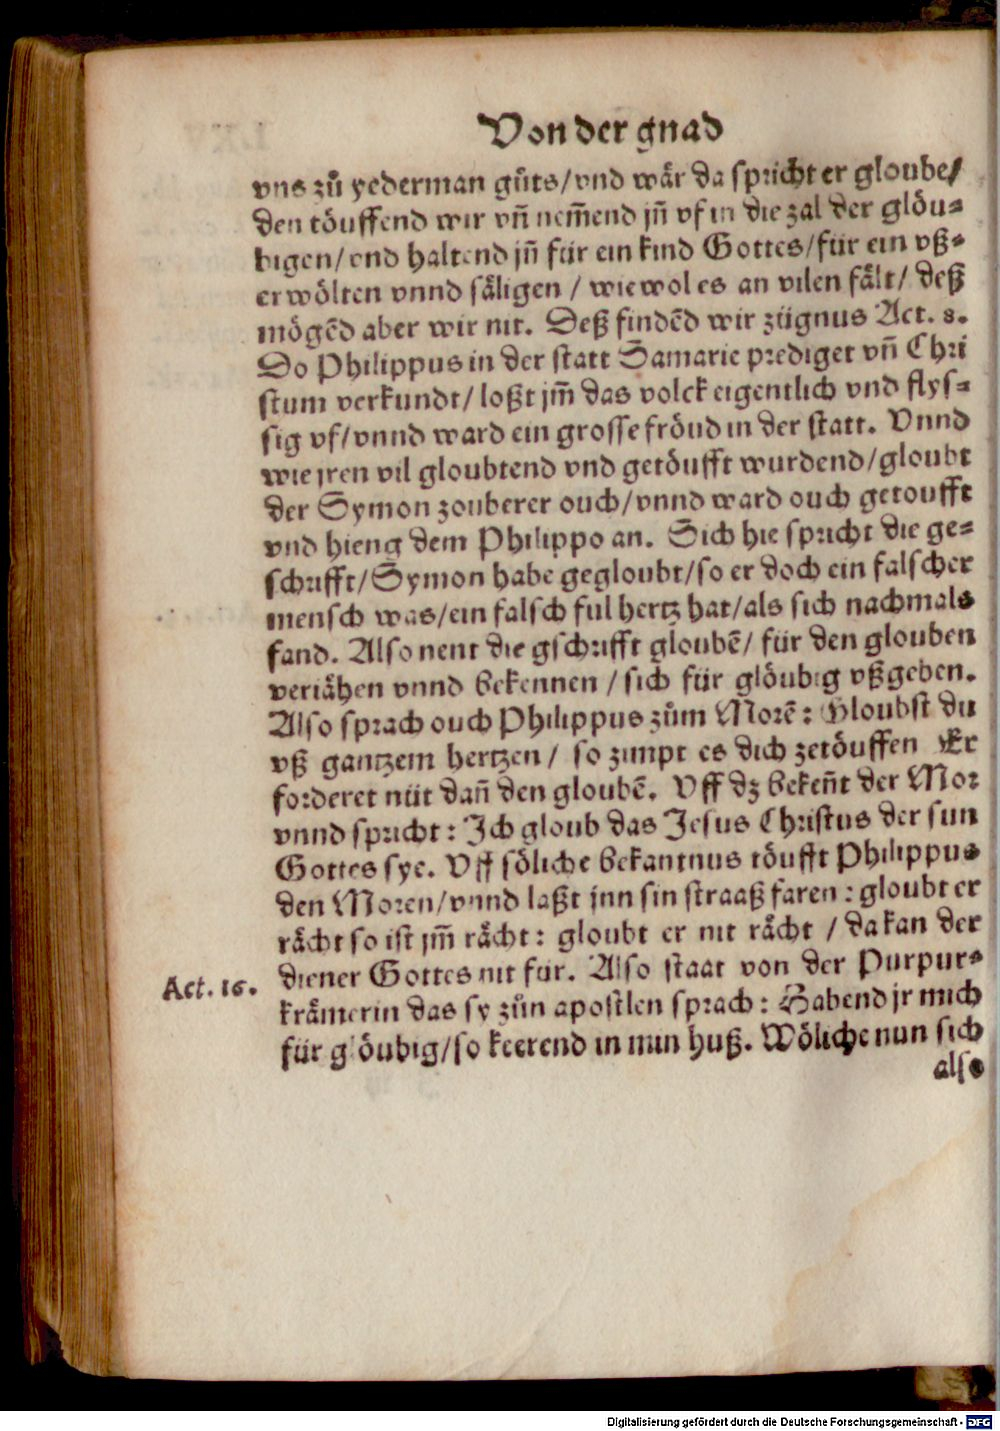 Von der gnad
vns zů yederman gůts/vnd wår da spricht er gloube/
den töuffend wir vn̄ nem̄end jn̄ vf in die zal der glöu⸗
bigen/vnd haltend jn̄ für ein kind Gottes/für ein vß⸗
erwölten vnnd såligen / wiewol es an vilen fålt/ deß
mögēd aber wir nit. Deß findēd wir zügnus Act. 8.
Do Philippus in der statt Samarie prediget vn̄ Chri
stum verkundt/ loßt jm̄ das volck eigentlich vnd flys⸗
sig vf/vnnd ward ein grosse fröud in der statt. Vnnd
wie jren vil gloubtend vnd getöufft wurdend/gloubt
der Symon zouberer ouch/vnnd ward ouch getoufft
vnd hieng dem Philippo an. Sich hie spricht die ge⸗
schrifft/Symon habe gegloubt/so er doch ein falscher
mensch was/ein falsch ful hertz hat/als sich nachmals
fand. Also nent die gschrifft gloubē/ für den glouben
veriåhen vnnd bekennen / sich für glöubig vßgeben.
Also sprach ouch Philippus zům Morē: Gloubst du
vß gantzem hertzen/ so zimpt es dich zetöuffen Er
forderet nüt dan̄ den gloubē. Vff dz beken̄t der Mor
vnnd spricht: Ich gloub das Jesus Christus der sun
Gottes sye. Vff söliche bekantnus töufft Philippus
den Moren/vnnd laßt jnn sin straaß faren: gloubt er
råcht so ist jm̄ råcht: gloubt er nit råcht / da kan der
diener Gottes nit für. Also staat von der Purpur⸗
Act. 16.
kråmerin das sy zůn apostlen sprach: Habend jr mich
für glöubig/so keerend in min huß. Wöliche nun sich
also
Digitalisierung gefördert durch die Deutsche Forschungsgemeinschaft - DFG